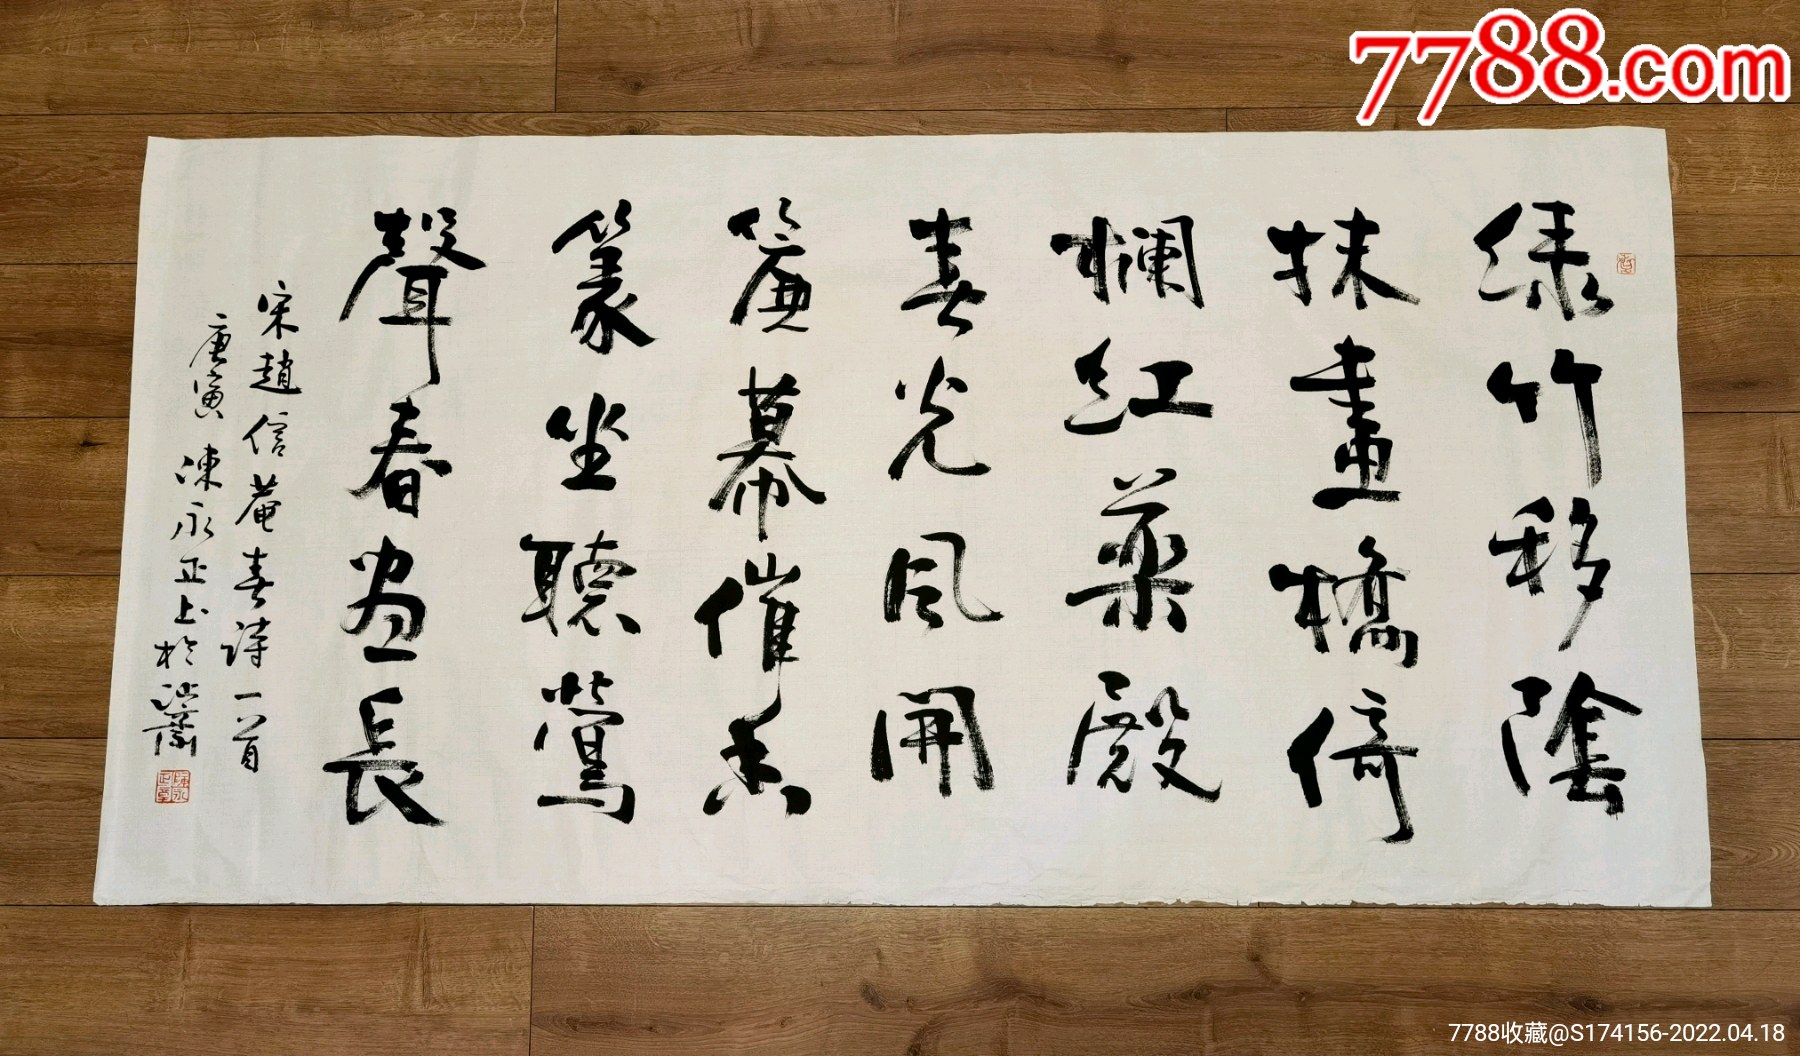 7788.com
綠竹移陰
抹畫橋倚
欄紅藥殿
春光風開
簾幕催香
篆坐聽鶯
聲春晝長
宋趙信菴春詩一首
庚寅 陳永正上於沚齋
7788收藏@S174156-2022.04.18